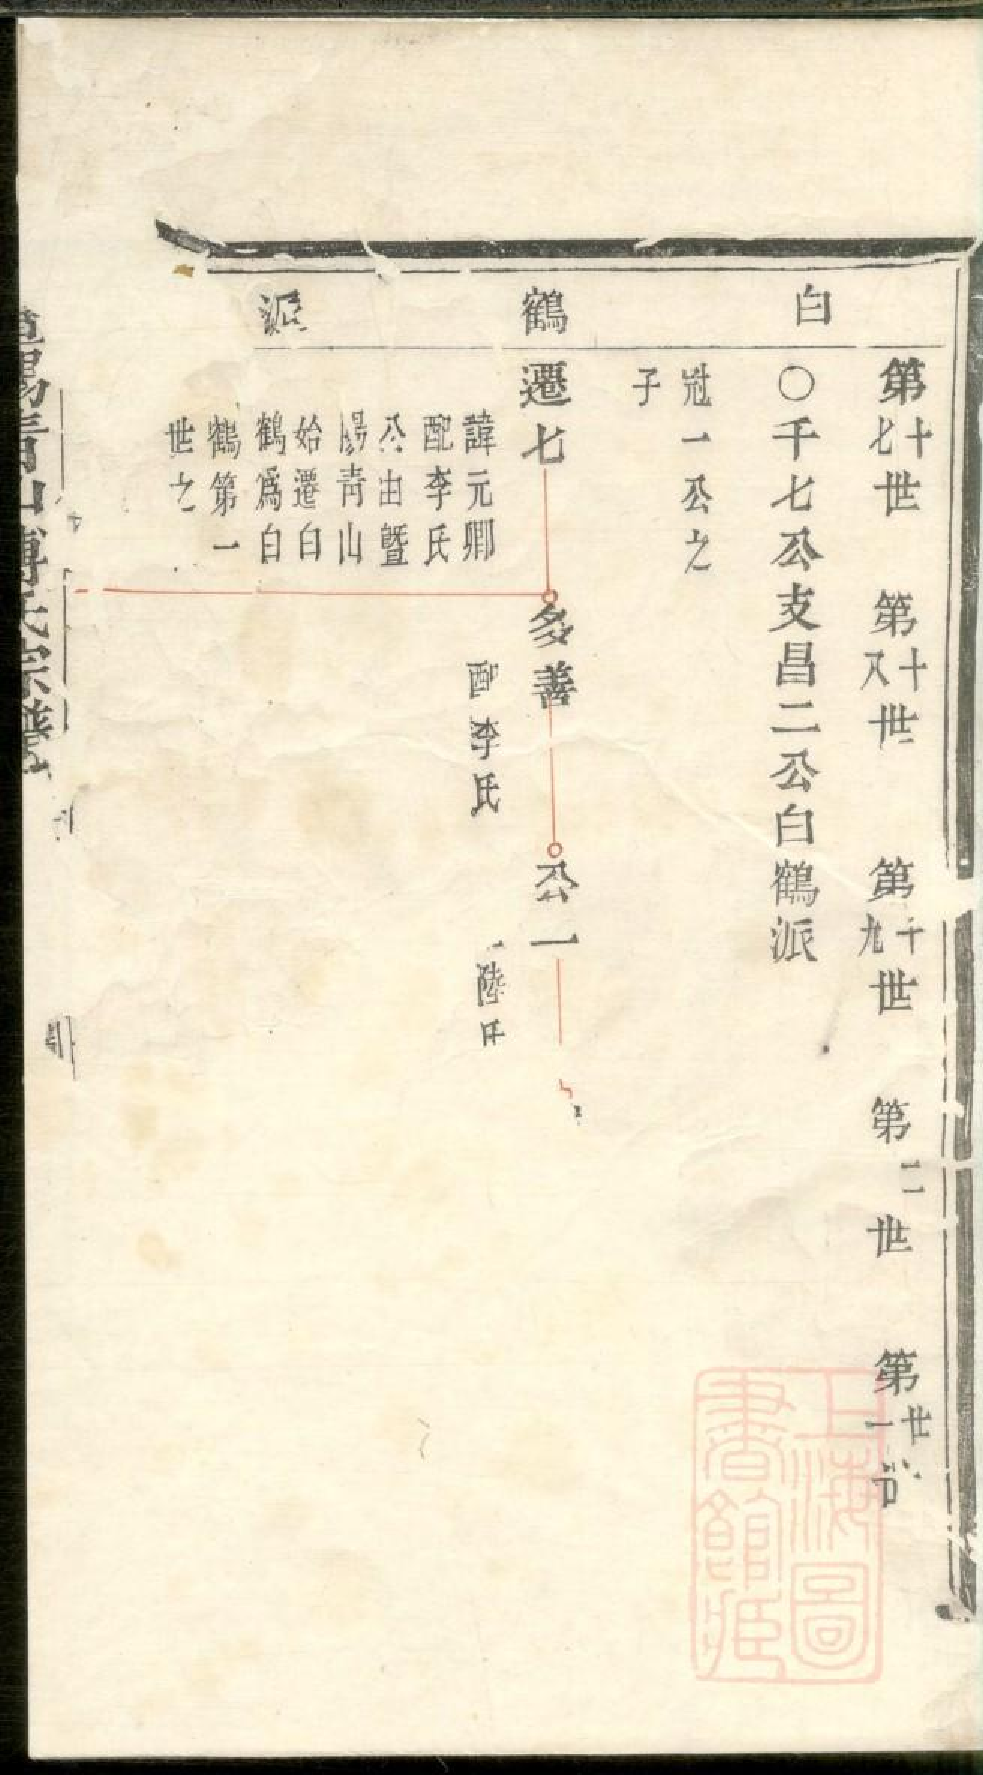 白鶴派
第十七世 第十八世 第十九世 第二世 第廿一
〇千七公支昌二公白鶴派
冠一公之
子
遷七 多善 公一
諱元卿
配李氏
公由暨
陽青山
始遷白
鶴爲白
鶴第一
世之
配李氏
陸氏
暨陽青山傅氏宗譜
上海圖
書館藏